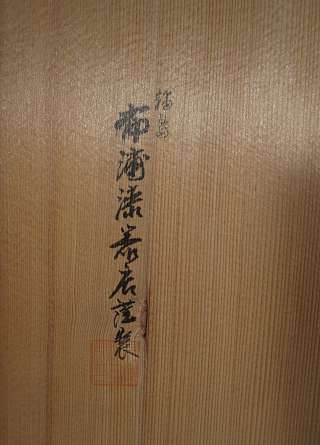 輪島
布浦漆器店謹製